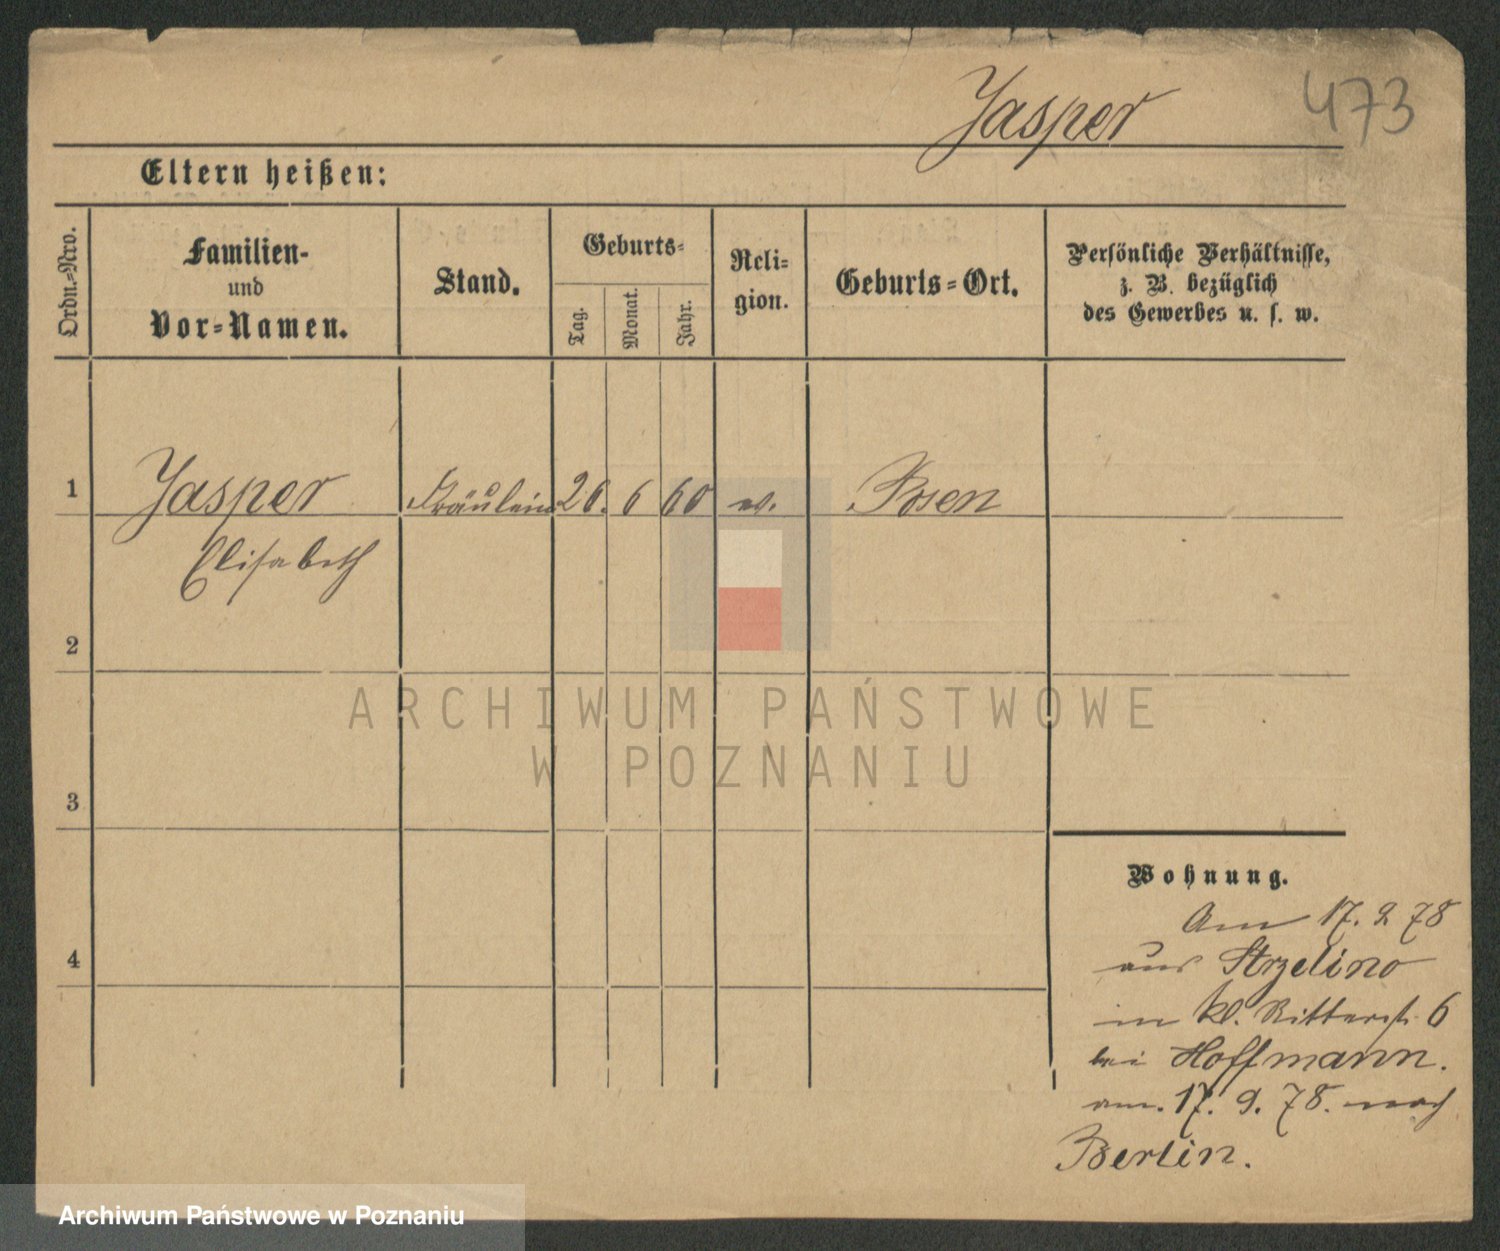 Jasper
473
Eltern heißen:
Ordn.-Nro.
Familien-
und
Vor-Namen.
Stand.
Geburts-
Tag.
Monat.
Jahr.
Reli-
gion.
Geburts-Ort.
Persönliche Verhältnisse,
z. B. bezüglich
des Gewerbes u. s. w.
1 Jasper Fräulein 26. 6 60 ev. Posen
Elisabeth
2
3
4
ARCHIWUM PAŃSTWOWE
W POZNANIU
Wohnung.
Am 17. 9 78
aus Strzelino
in kl. Ritterst. 6
bei Hoffmann.
am. 17. 9. 78. nach
Berlin.
Archiwum Państwowe w Poznaniu